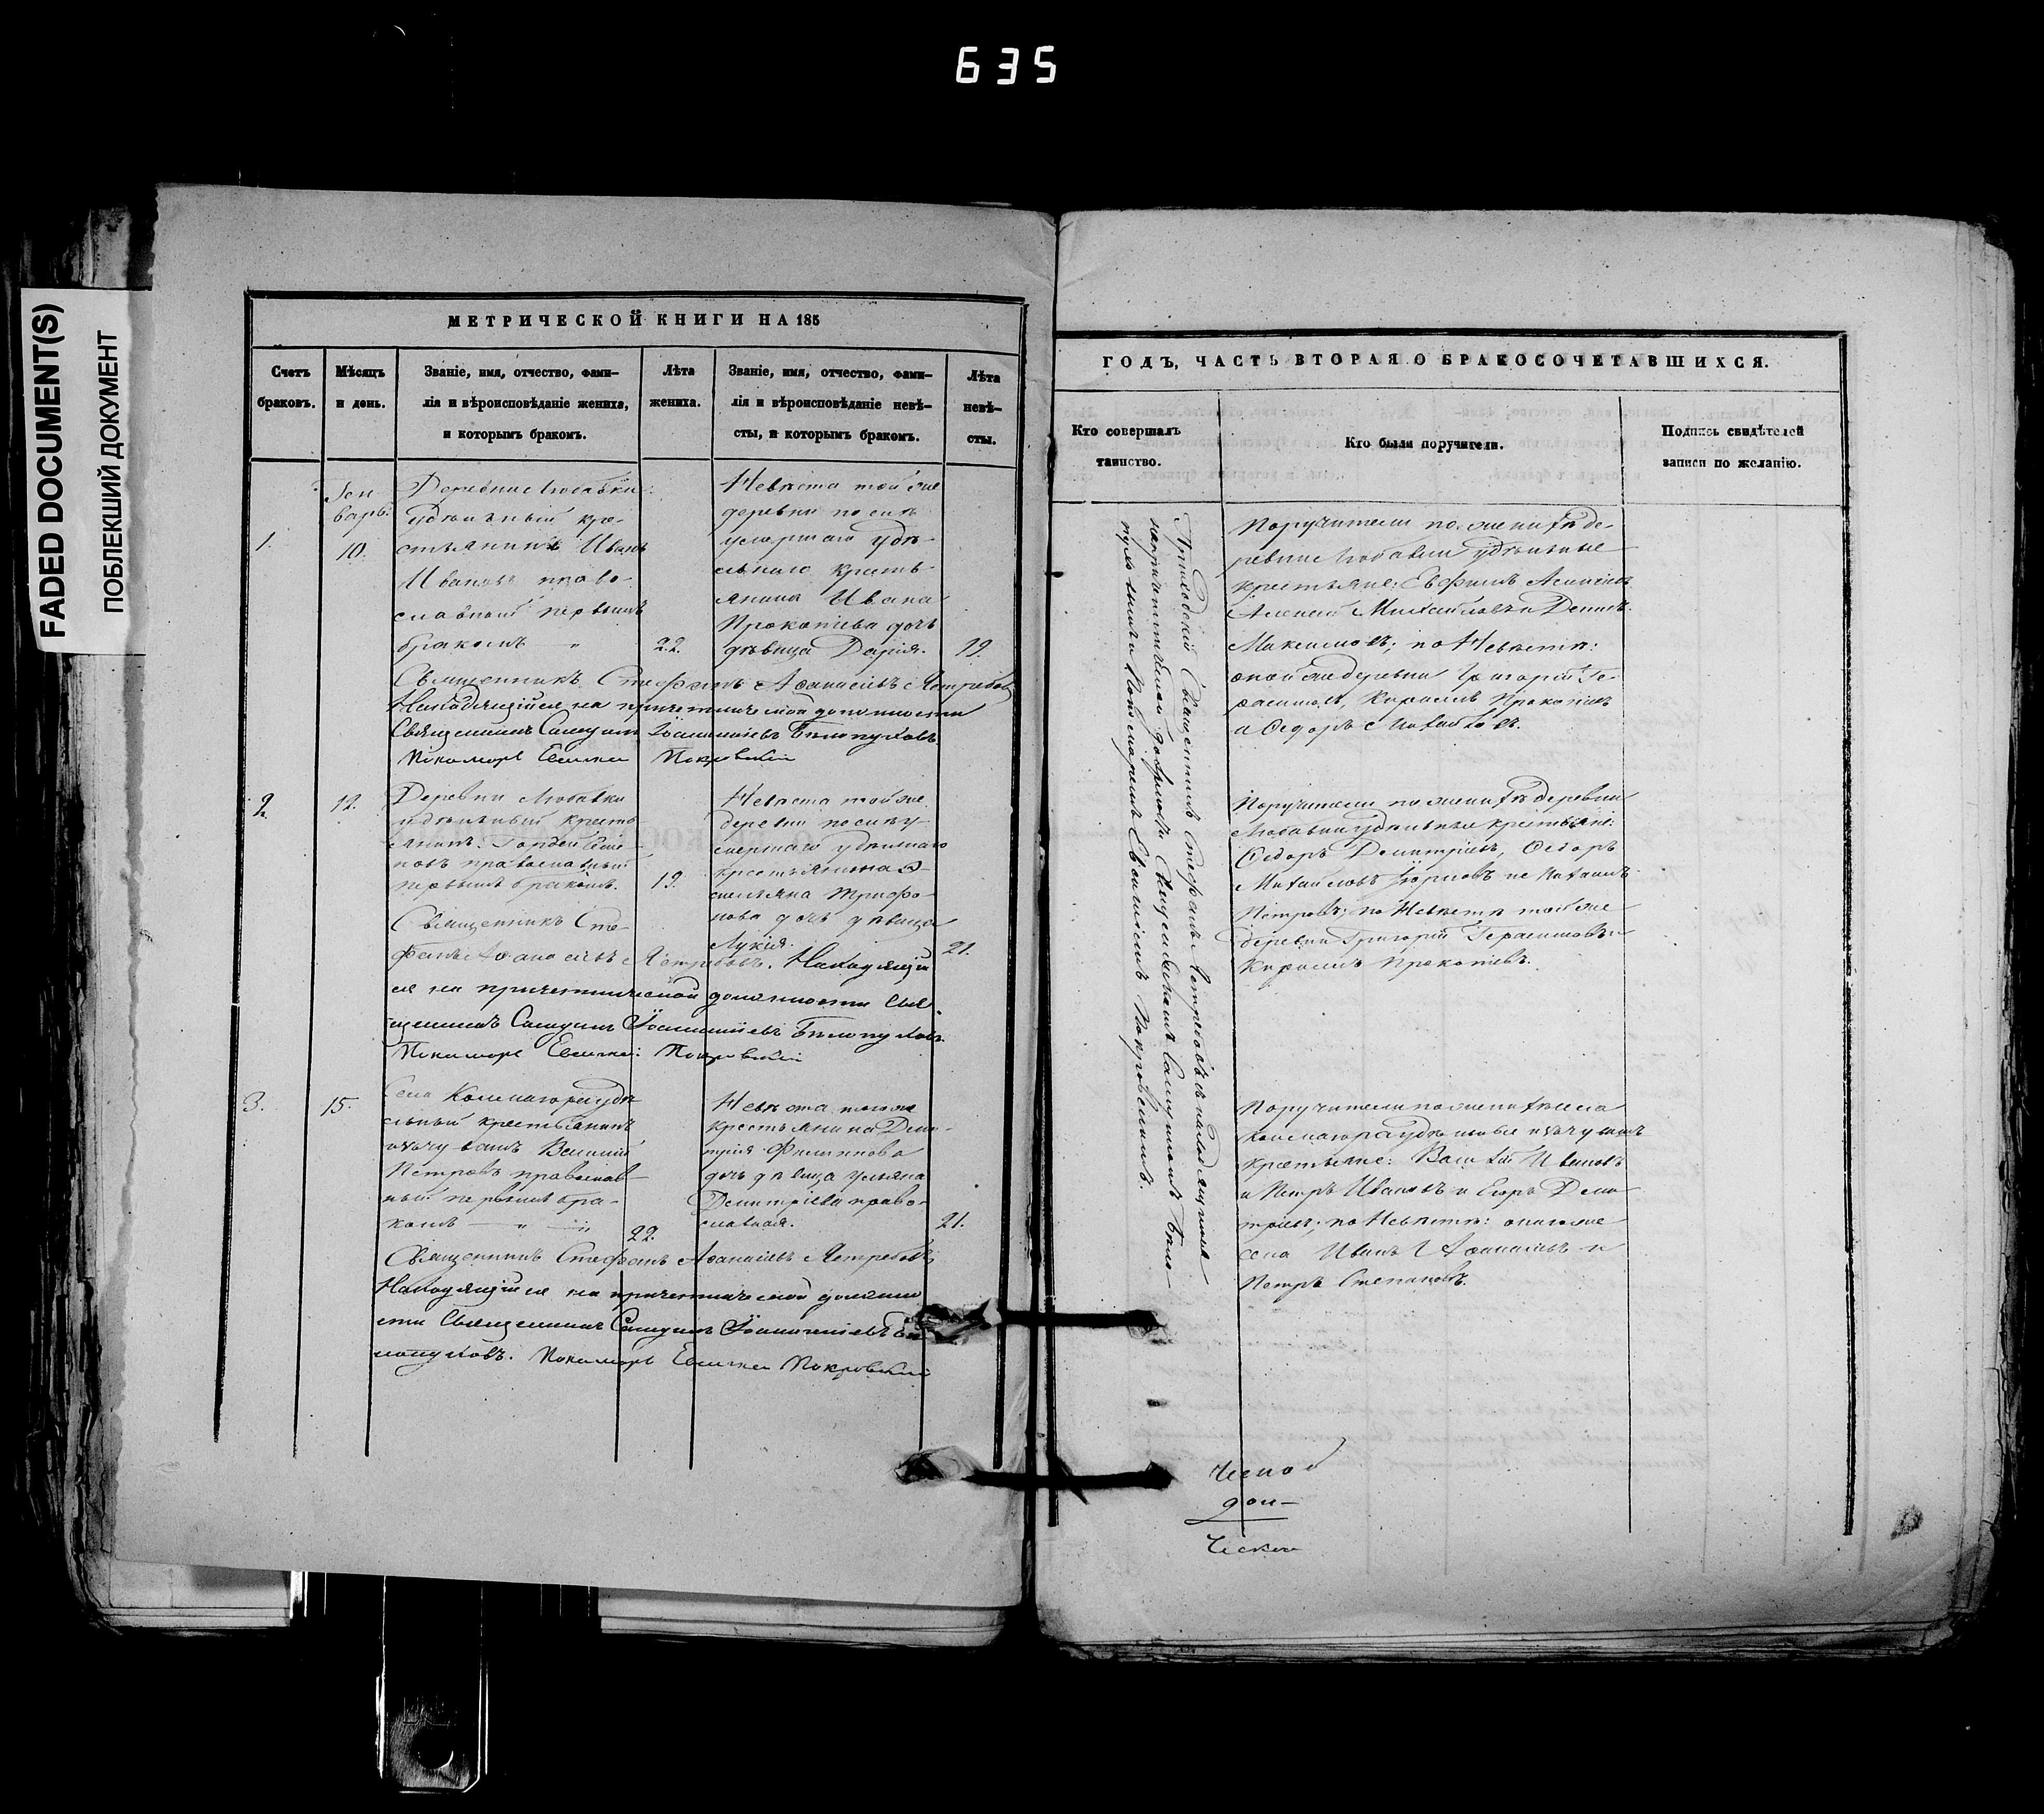 635
FADED DOCUMENT(S)
ПОБЛЕКШИЙ ДОКУМЕНТ
МЕТРИЧЕСКОЙ КНИГИ НА 185
Счетъ браковъ.
Мѣсяцъ и день.
Званіе, имя, отчество, фами-
лія и вѣроисповѣданіе жениха,
и которымъ бракомъ.
Лѣта жениха.
Званіе, имя, отчество, фами-
лія и вѣроисповѣданіе невѣ-
сты, и которымъ бракомъ.
Лѣта невѣ-
сты.
1.
Ген
варь.
10.
Деревни Любавки
удѣльный кре-
стьянинъ Иванъ
Ивановъ право-
славный первымъ
бракомъ "
22.
Невѣста той же
деревни послѣ
умершаго удѣ-
льнаго кресть-
янина Ивана
Прокопіева дочь
дѣвица Дарія.
19.
Священникъ Стефанъ Аѳанасіевъ Ястребовъ
Находящійся на причетнической должности
Священникъ Самуилъ Іоанникіевъ Бѣлопуховъ
Пономарь Евсигней Покровскій
2.
12.
Деревни Любавки
удѣльный кресть-
янинъ Гордей
православный
первымъ бракомъ.
19.
Невѣста той же
деревни послѣ у-
мершаго удѣльнаго
крестьянина Э-
мельяна Трифо-
нова дочь дѣвица
Лукія.
21.
Священникъ Сте-
фанъ Аѳанасіевъ Ястребовъ. Находящій
ся на причетнической должности Свя-
щенникъ Самуилъ Іоанникіевъ Бѣлопуховъ
Пономарь Евсигней Покровскій
3.
15.
Села удѣ
льный крестьянинъ
Василій
Петровъ православ-
ный первымъ бра-
комъ — " — "
22.
Невѣста того же
крестьянина Дми-
трія Филипова
дочь дѣвица Ульяна
Димитріева право-
славная.
21.
Священникъ Стефанъ Аѳанасіевъ Ястребовъ
Находящійся на причетнической должно
сти Священникъ Самуилъ Іоанникіевъ Бѣ
лопуховъ. Пономарь Евсигней Покровскій
ГОДЪ, ЧАСТЬ ВТОРАЯ О БРАКОСОЧЕТАВШИХСЯ.
Кто совершалъ
таинство.
Кто были поручители.
Подпись свидѣтелей
записи по желанію.
Приходскій Священникъ Стефанъ Ястребовъ съ находящимся
на причетнической должности Священникомъ Самуиломъ Бѣло-
пуховымъ и Пономаремъ Покровскимъ.
Поручители по женихѣ де-
ревни Любавки удѣльные
крестьяне: Евфимъ
Алексѣй Михайловъ и Денисъ
Максимовъ; по Невѣстѣ:
оной же деревни Григорій Ге-
расимовъ, Кирилъ Прокопіевъ
и Ѳедоръ Михайловъ.
Поручители по женихѣ деревни
Любавки удѣльные крестьяне:
Ѳедоръ Димитріевъ, Ѳедоръ
Михайловъ
Петровъ; по Невѣстѣ той же
деревни Григорій Герасимовъ и
Кирилъ Прокопіевъ.
Поручители по женихѣ села
крестьяне: Василій Ивановъ
и Петръ Ивановъ и Егоръ Дими
тріевъ; по Невѣстѣ: оного же
села Иванъ Аѳанасіевъ и
Петръ Степановъ.